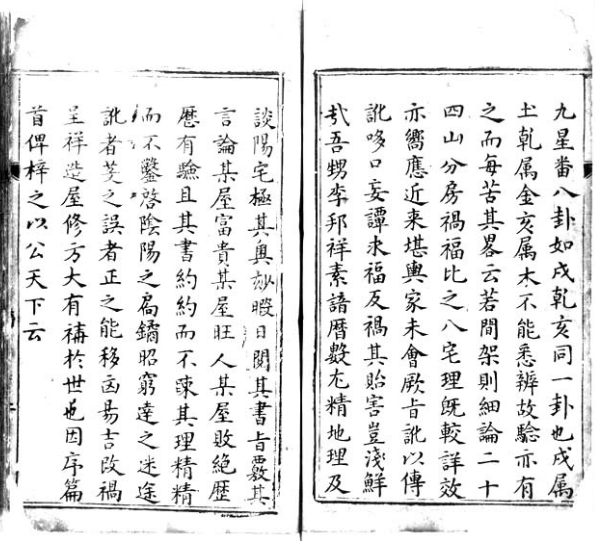 九星番八卦如戌乾亥同一卦也戌属
土乹属金亥属木不能悉辨故騐亦有
之而每苦其畧云若間架則細論二十
四山分房禍福比之八宅理既較詳效
亦嚮應近来堪輿家未會厥旨訛以傳
訛哆口妄譚求福反禍其貽害豈淺鮮
㢤吾甥李邦祥素諳暦數尤精地理及
談陽宅極其奥玅暇日閲其書旨覈其
言論某屋富貴某屋旺人某屋敗絶歴
歴有驗且其書約約而不踈其理精精
而不鑿啓陰陽之扃鐍昭窮達之迷途
訛者芟之誤者正之能移凶易吉改禍
呈祥造屋修方大有禆於世也因序篇
首俾梓之以公天下云